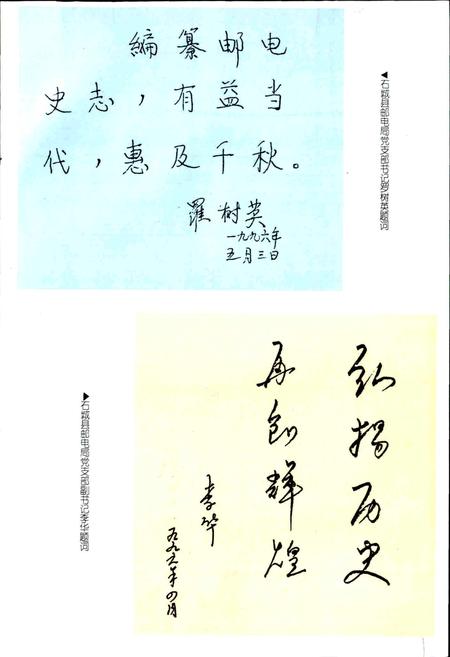 編纂邮电
史志，有益当
代，惠及千秋。
羅树英
一九九六年
五月三日
◀石城县邮电局党支部书记罗树英题词
弘扬历史
再创辉煌
李华
一九九六年四月
▶石城县邮电局党支部副书记李华题词